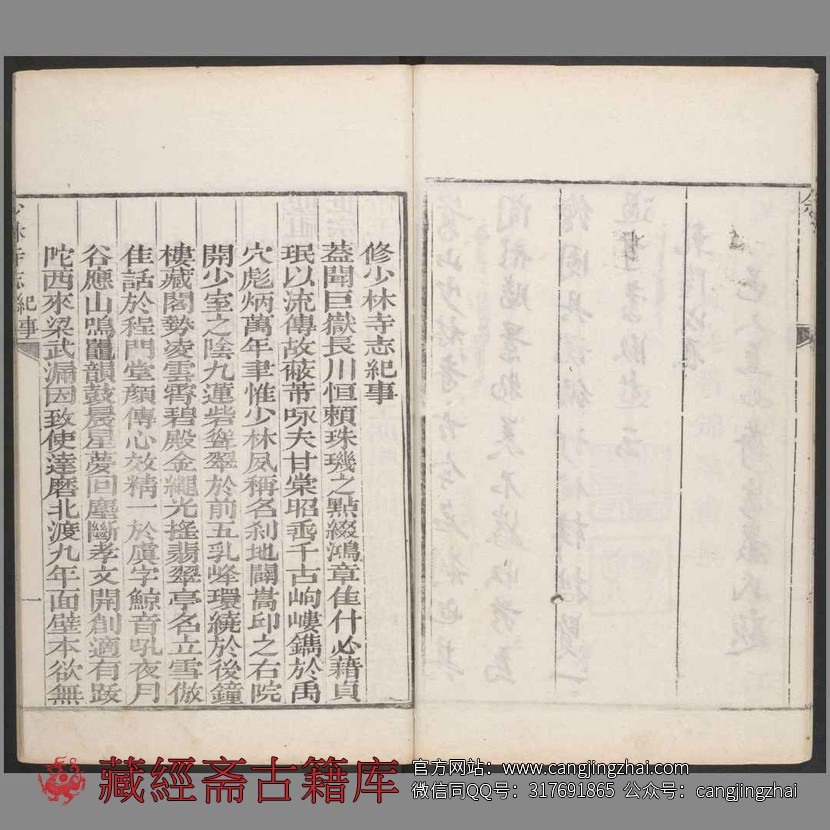 修少林寺志紀事
蓋聞巨嶽長川恒賴珠璣之點綴鴻章佳什必藉貞
珉以流傳故蔽芾咏夫甘棠昭垂千古岣嶁鐫於禹
穴彪炳萬年聿惟少林夙稱名刹地闢嵩邙之右院
開少室之陰九蓮砦聳翠於前五乳峰環繞於後鐘
樓藏閣勢凌雲霄碧殿金繩光搖翡翠亭名立雪倣
佳話於程門堂顏傳心效精一於虞字鯨音吼夜月
谷應山鳴鼉韻鼓晨星夢回塵斷孝文開創適有跋
陀西來梁武漏因致使達磨北渡九年面壁本欲無
少林寺志 紀事
一
藏經斋古籍库
官方网站：www.cangjingzhai.com
微信同QQ号：317691865 公众号：cangjingzhai